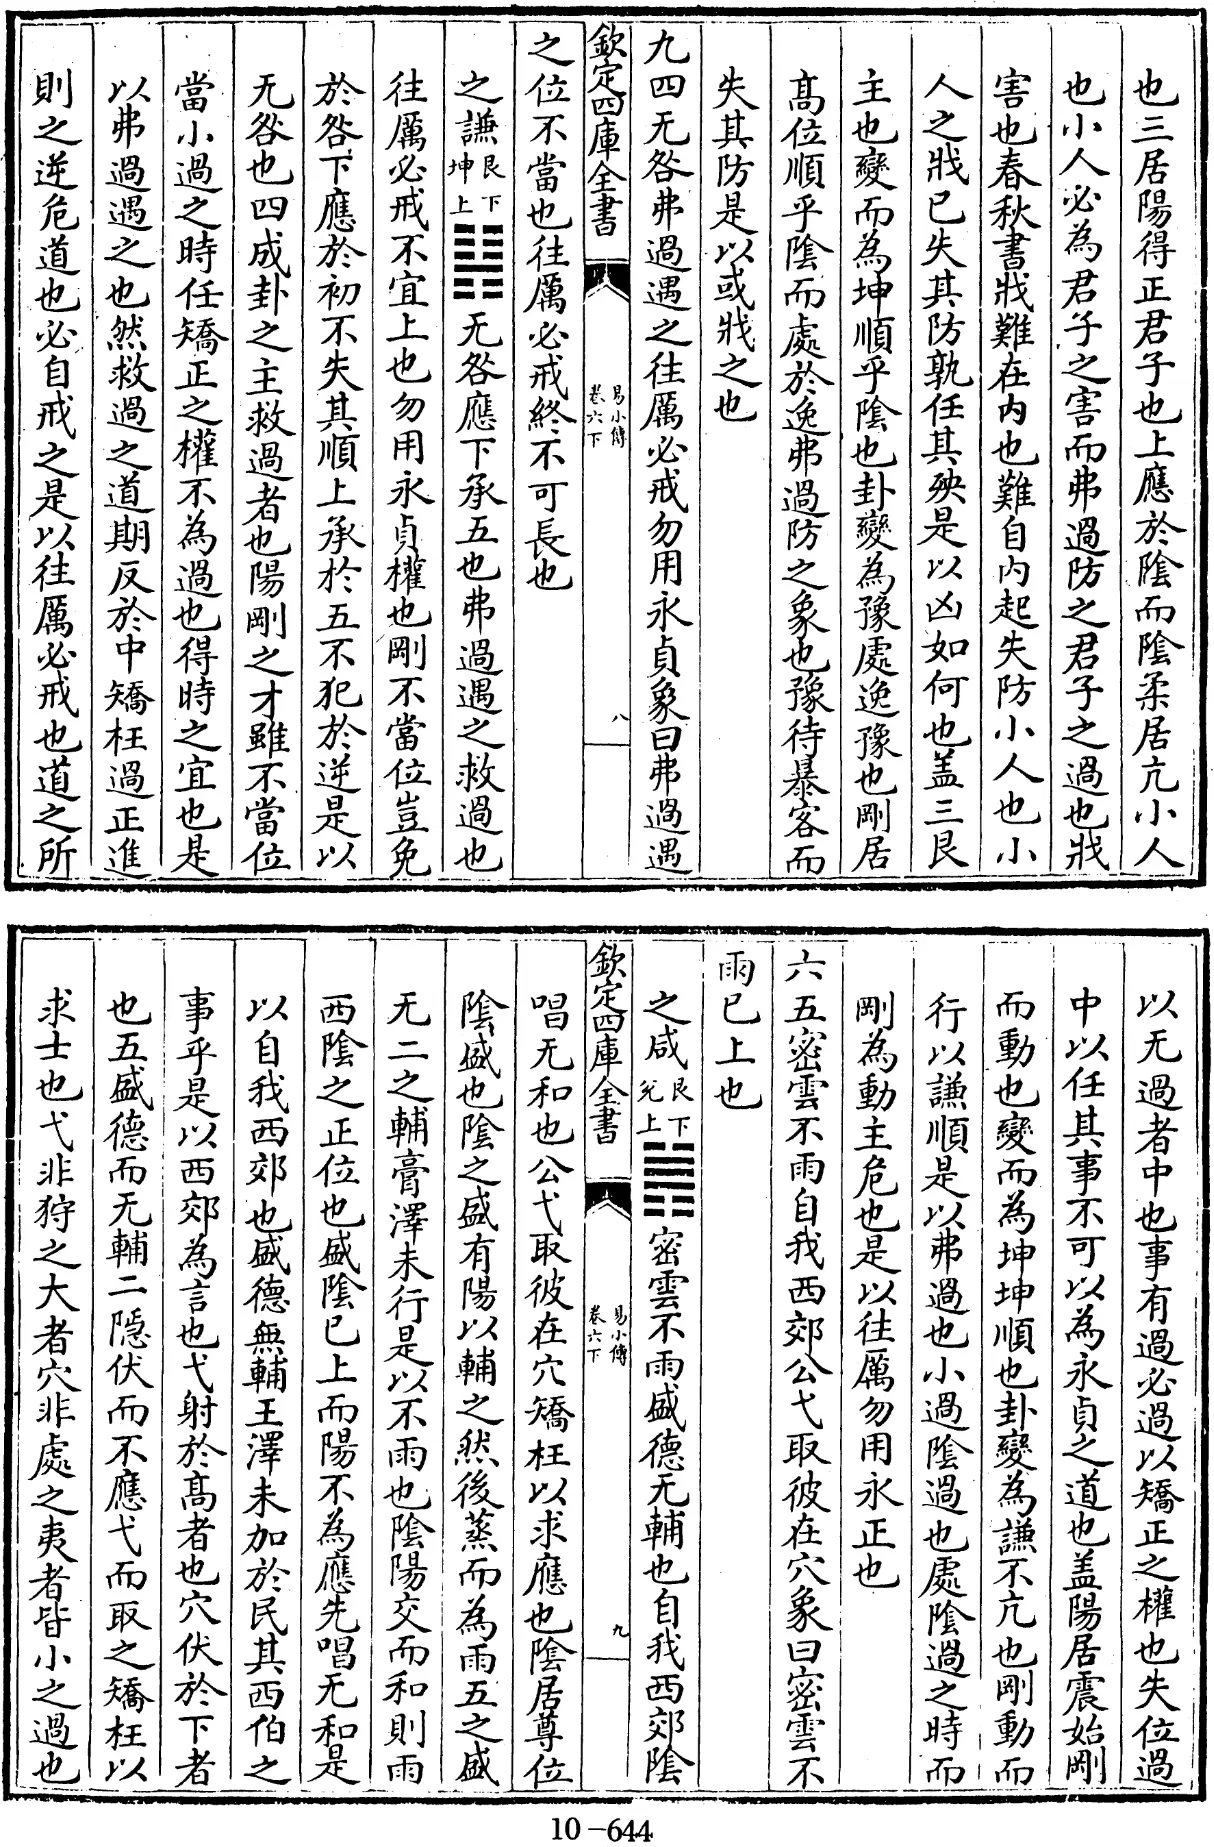 也三居陽得正君子也上應於陰而陰柔居亢小人
也小人必為君子之害而弗過防之君子之過也戕
害也春秋書戕難在內也難自内起失防小人也小
人之戕已失其防孰任其殃是以凶如何也盖三艮
主也變而為坤順乎陰也卦變為豫處逸豫也剛居
髙位順乎陰而處於逸弗過防之象也豫待暴客而
失其防是以或戕之也
九四无咎弗過遇之往厲必戒勿用永貞象曰弗過遇
欽定四庫全書
易小傳
卷六下
八
之位不當也往厲必戒終不可長也
之謙艮下坤上䷎无咎應下承五也弗過遇之救過也
往厲必戒不宜上也勿用永貞權也剛不當位豈免
於咎下應於初不失其順上承於五不犯於逆是以
无咎也四成卦之主救過者也陽剛之才雖不當位
當小過之時任矯正之權不為過也得時之宜也是
以弗過遇之也然救過之道期反於中矯枉過正進
則之逆危道也必自戒之是以往厲必戒也道之所
以无過者中也事有過必過以矯正之權也失位過
中以任其事不可以為永貞之道也盖陽居震始剛
而動也變而為坤坤順也卦變為謙不亢也剛動而
行以謙順是以弗過也小過陰過也處陰過之時而
剛為動主危也是以往厲勿用永正也
六五密雲不雨自我西郊公弋取彼在穴象曰密雲不
雨已上也
之咸艮下兊上䷞密雲不雨盛德无輔也自我西郊陰
欽定四庫全書
易小傳
卷六下
九
唱无和也公弋取彼在穴矯枉以求應也陰居尊位
陰盛也陰之盛有陽以輔之然後蒸而為雨五之盛
无二之輔膏澤未行是以不雨也陰陽交而和則雨
西陰之正位也盛陰已上而陽不為應先唱无和是
以自我西郊也盛德無輔王澤未加於民其西伯之
事乎是以西郊為言也弋射於髙者也穴伏於下者
也五盛德而无輔二隱伏而不應弋而取之矯枉以
求士也弋非狩之大者穴非處之夷者皆小之過也
10-644